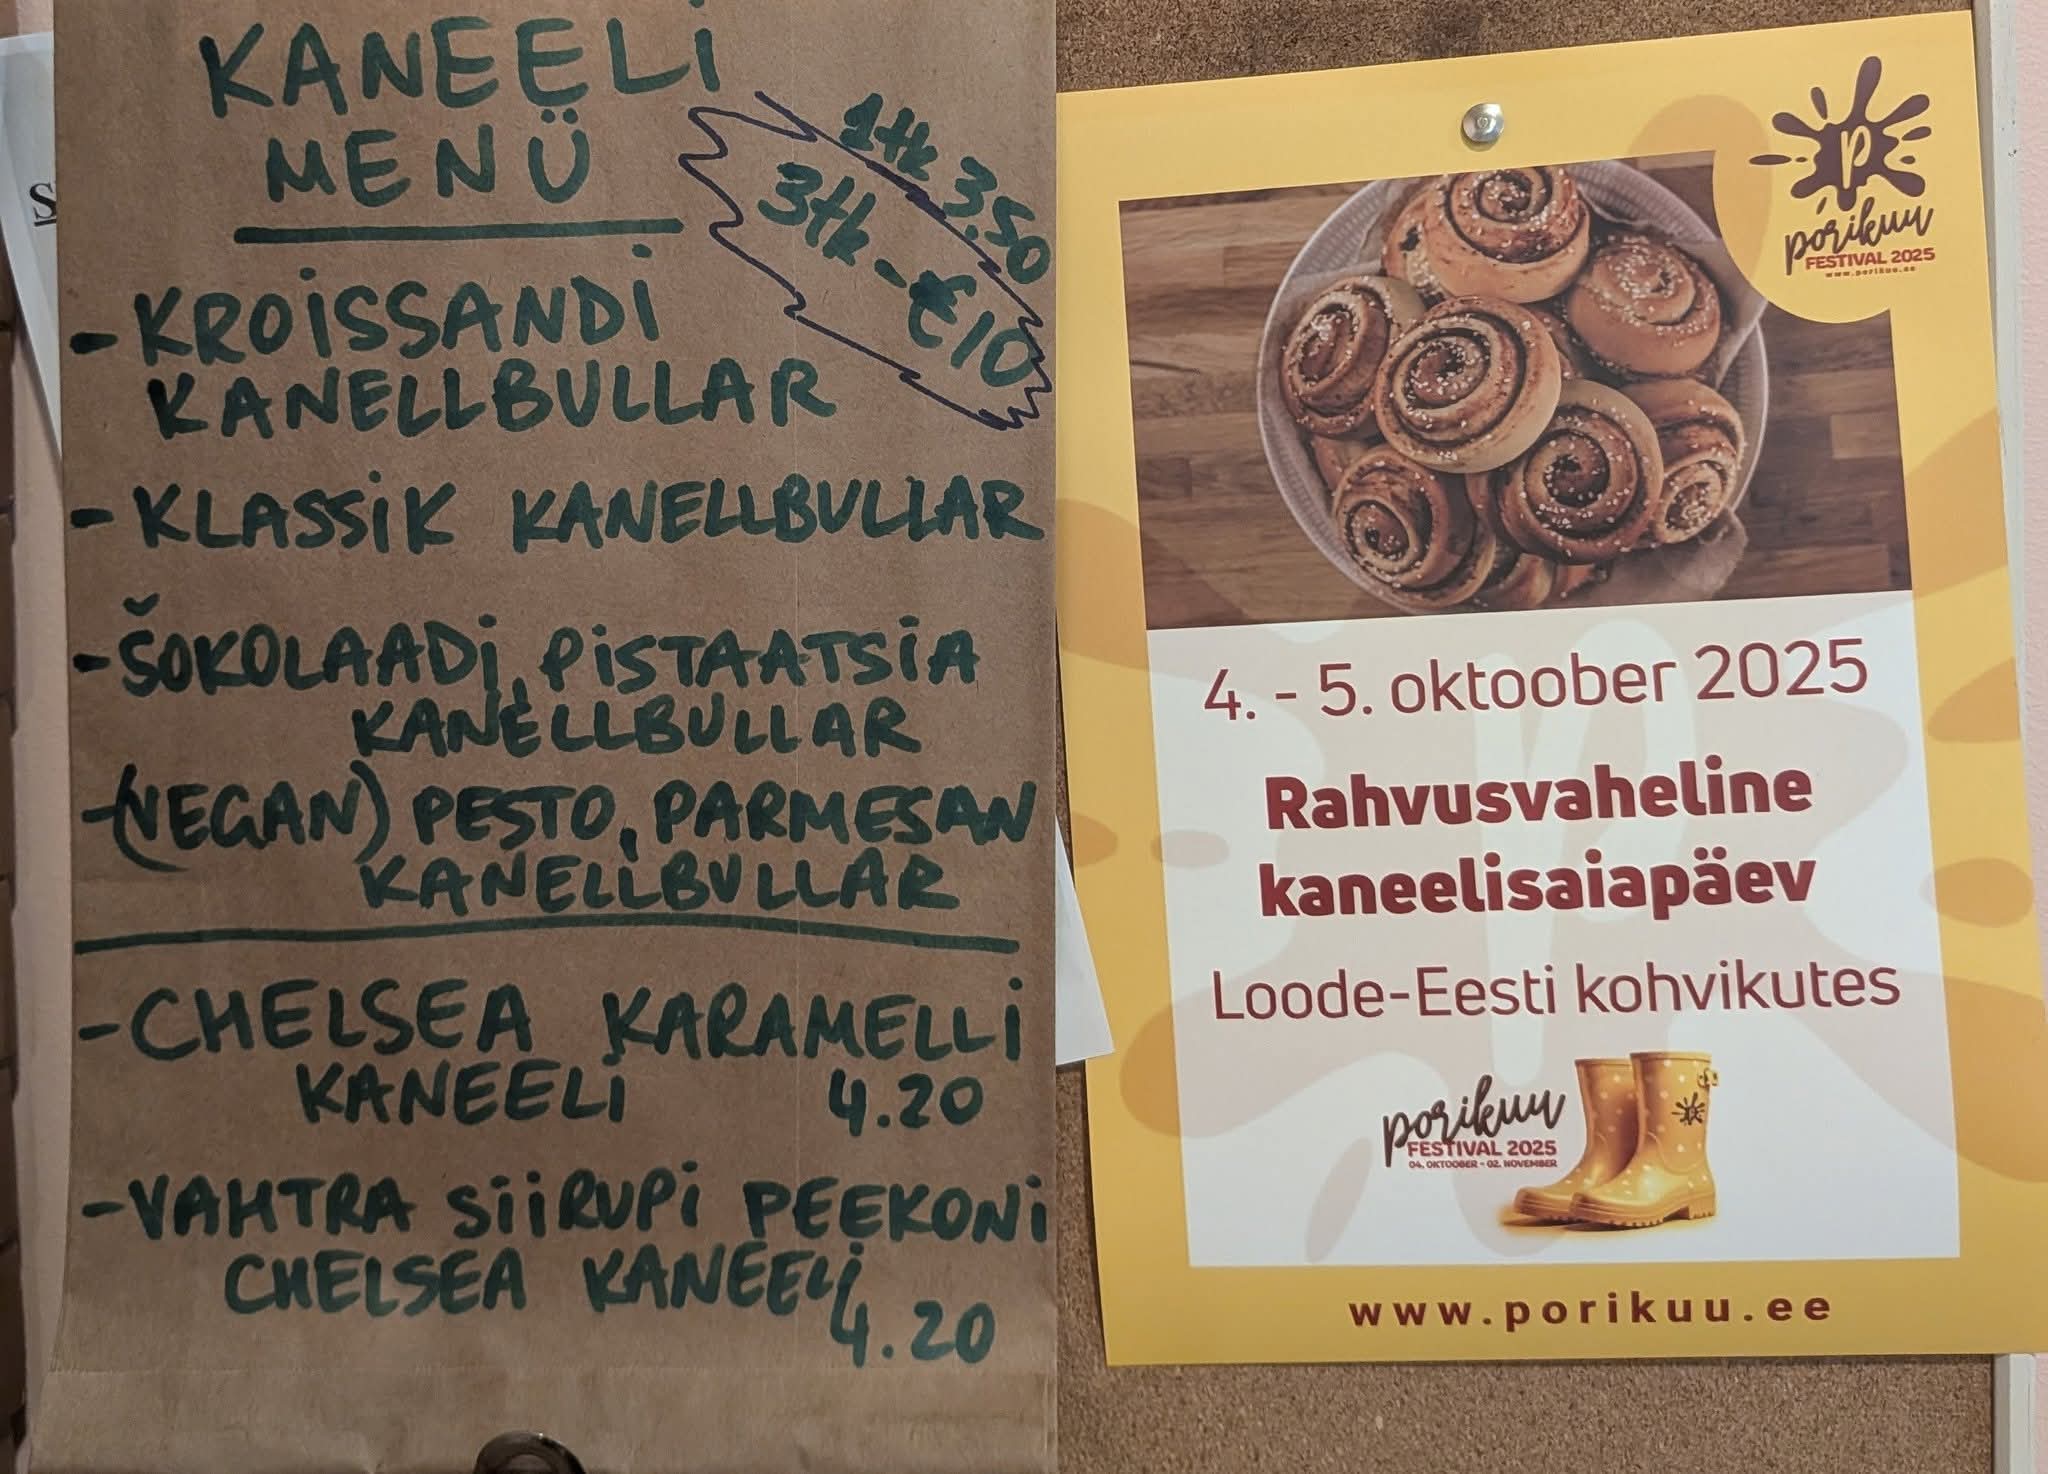 KANEELI
MENÜ
1tk 3.50
3tk - €10
- KROISSANDI
KANELLBULLAR
- KLASSIK KANELLBULLAR
- ŠOKOLAADI, PISTAATSIA
KANELLBULLAR
- (VEGAN) PESTO, PARMESAN
KANELLBULLAR
- CHELSEA KARAMELLI
KANEELI 4.20
- VAHTRA SIIRUPI PEEKONI
CHELSEA KANEELI
4.20
S
P
porikuu
FESTIVAL 2025
www.porikuu.ee
4. - 5. oktoober 2025
Rahvusvaheline
kaneelisaiapäev
Loode-Eesti kohvikutes
porikuu
FESTIVAL 2025
04. OKTOOBER - 02. NOVEMBER
www.porikuu.ee